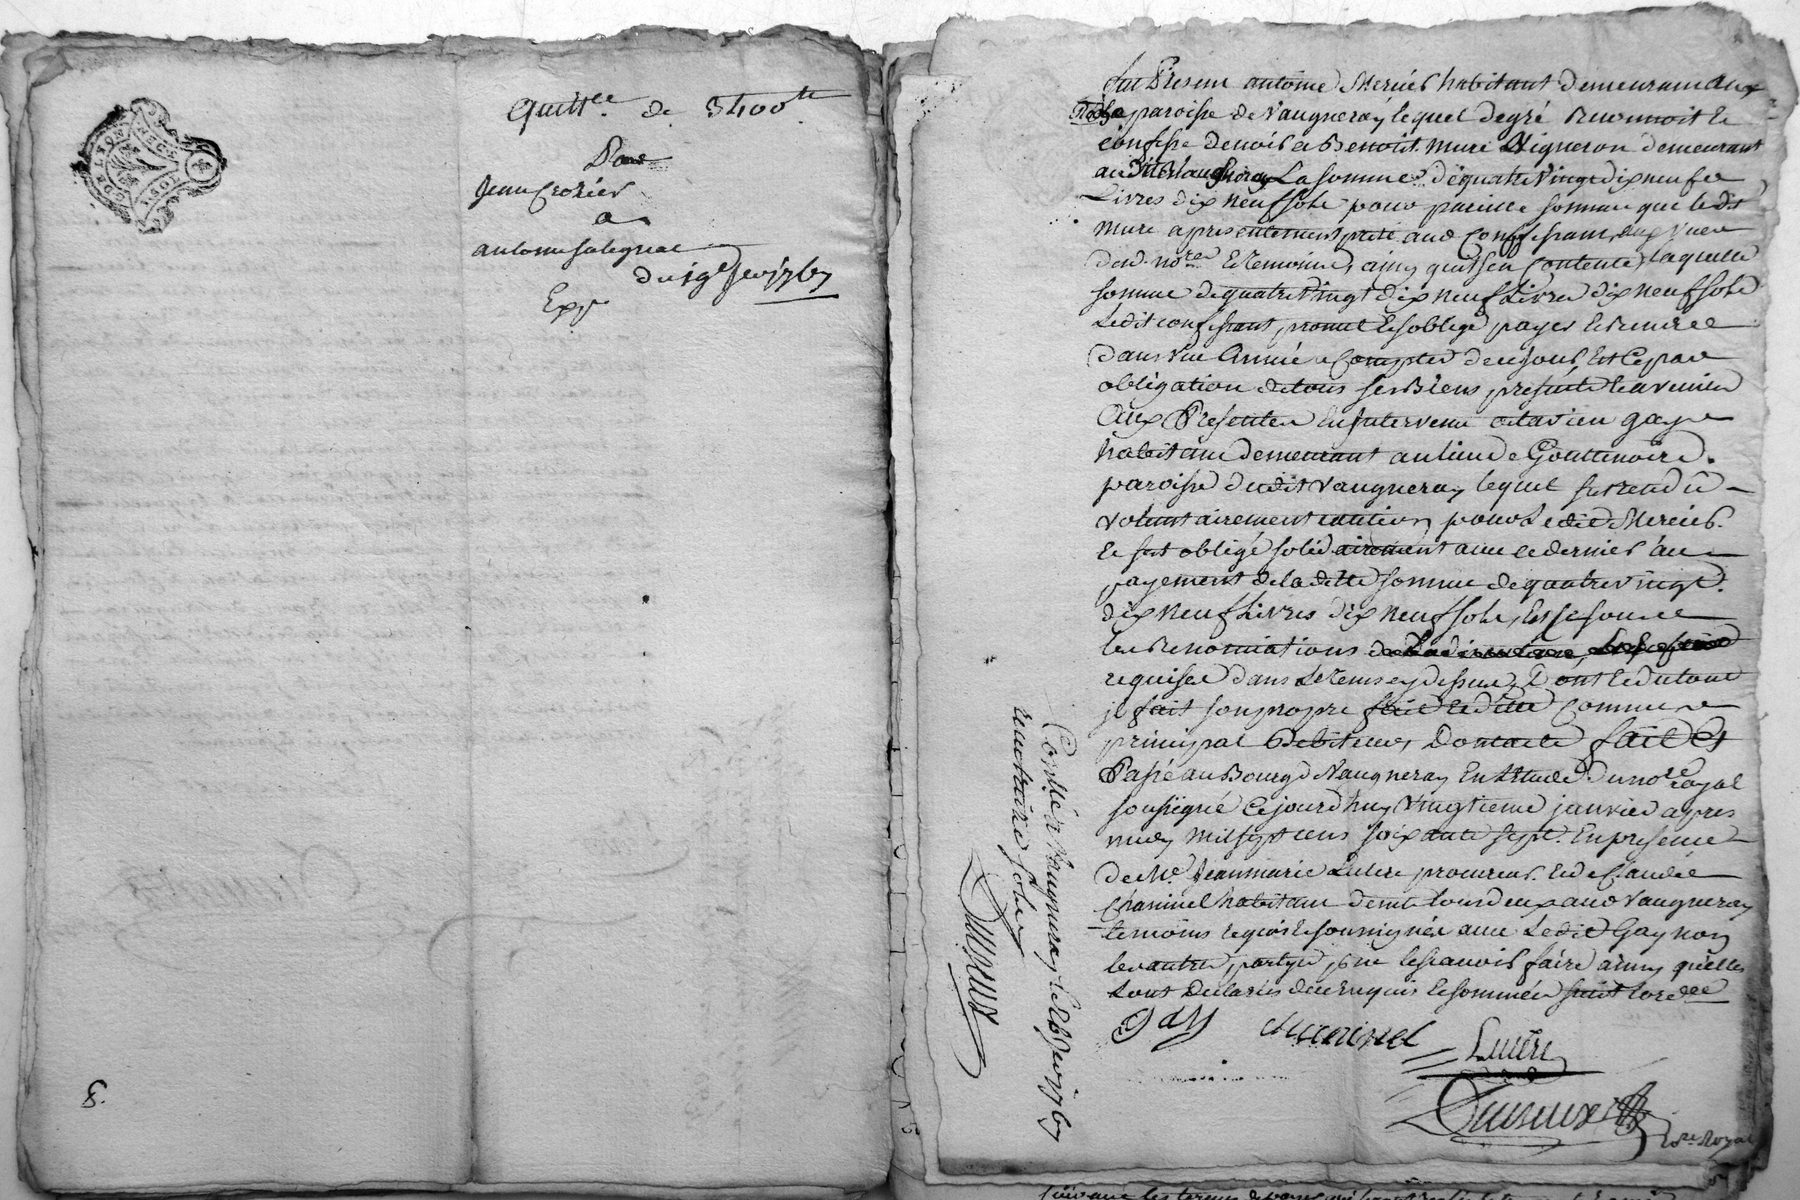 GEN. DE LYON
Quitt.ce de 3400 lt
Par
Jean Crozier
a
antoine salignac
du 19e Janv 1767
Exp.
8.
fut Présent antoine Mercier habitant demeurant aux
paroisse de Vaugneray lequel de gré Reconnoit et
confesse devoir a Benoit Mure Vigneron demeurant
audit Vaugneray La somme de quatre vingt dix neuf
Livres dix neuf sols pour pareille somme que ledit
Mure a presentement preté aud Confessant, aux vues
dud. no.re et temoins, ainsy qu'il s'en Contente, laquelle
somme de quatre vingt dix neuf Livres dix neuf sols
Ledit confessant, promet et s'oblige payer et rendre
dans une Année a Compter de ce jour, Et ce par
obligation de tous ses Biens presents et avenir
Aux Presentes Est Intervenu octavien gay
habitant demeurant au lieu de Gouttenoire.
paroisse dudit Vaugneray lequel s'est rendu
volontairement caution pour Ledit Mercier.
et s'est obligé solidairement avec ce dernier au
payement de la dette somme de quatre vingt
dix neuf Livres dix neuf sols, Et sous
les Renonciations
requises dans Le tems cy dessus, Dont et du tout
il fait son propre fait et dette Comme
principal Debiteur, Dont acte fait et
Passé au Bourg de Vaugneray En Etude du no.re royal
soussigné Ce jourd'huy vingtieme janvier apres
midy mil sept cens soixante sept. En presence
de Me. Jean marie Lutere procureur. et de Claude
Chaninel habitans demt tous deux aud Vaugneray
temoins requis et soussignés avec Ledit Gay non
les autres parties pour ne le scavoir faire ainsy qu'elles
L'ont Declarés de ce enquis et sommées
gay chaninel Lutere
No.re Royal
Con.llé a Vaugneray le 26 Janv 1767